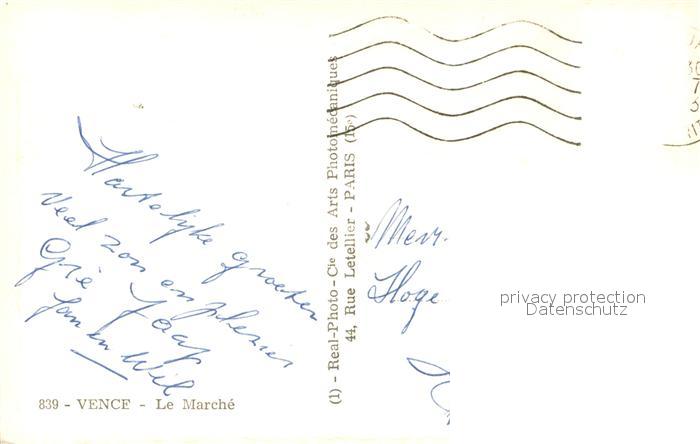 Hartelijke groeten
Veel zon en plezier
Grė Jaap
Jan en Wil
839 - VENCE - Le Marché
(1) - Real-Photo - Cie des Arts Photomécaniques
44, Rue Letellier - PARIS (15e)
Mevr.
Hoge
privacy protection
Datenschutz